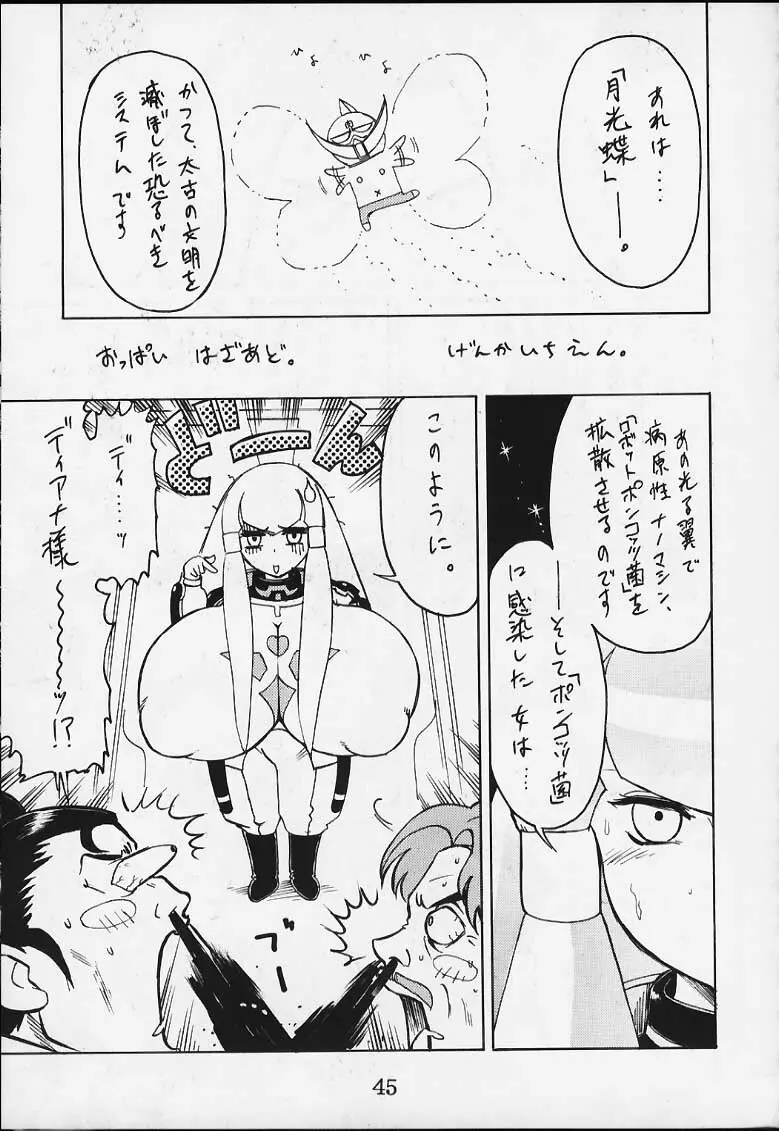 あれは‥‥
「月光蝶」――。
ぴよ
ぴよ
かつて、太古の文明を
滅ぼした恐るべき
システムです
げんかいちえん。
おっぱい はざあど。
あの光る翼で
病原性ナノマシン、
「ロボットポンコッツ菌」を
拡散させるのです
――そして「ポンコッツ菌」
に感染した女は…
このように。
どーん
ディ‥‥ッ
ディアナ様～～～～ッ!?
ブー
45